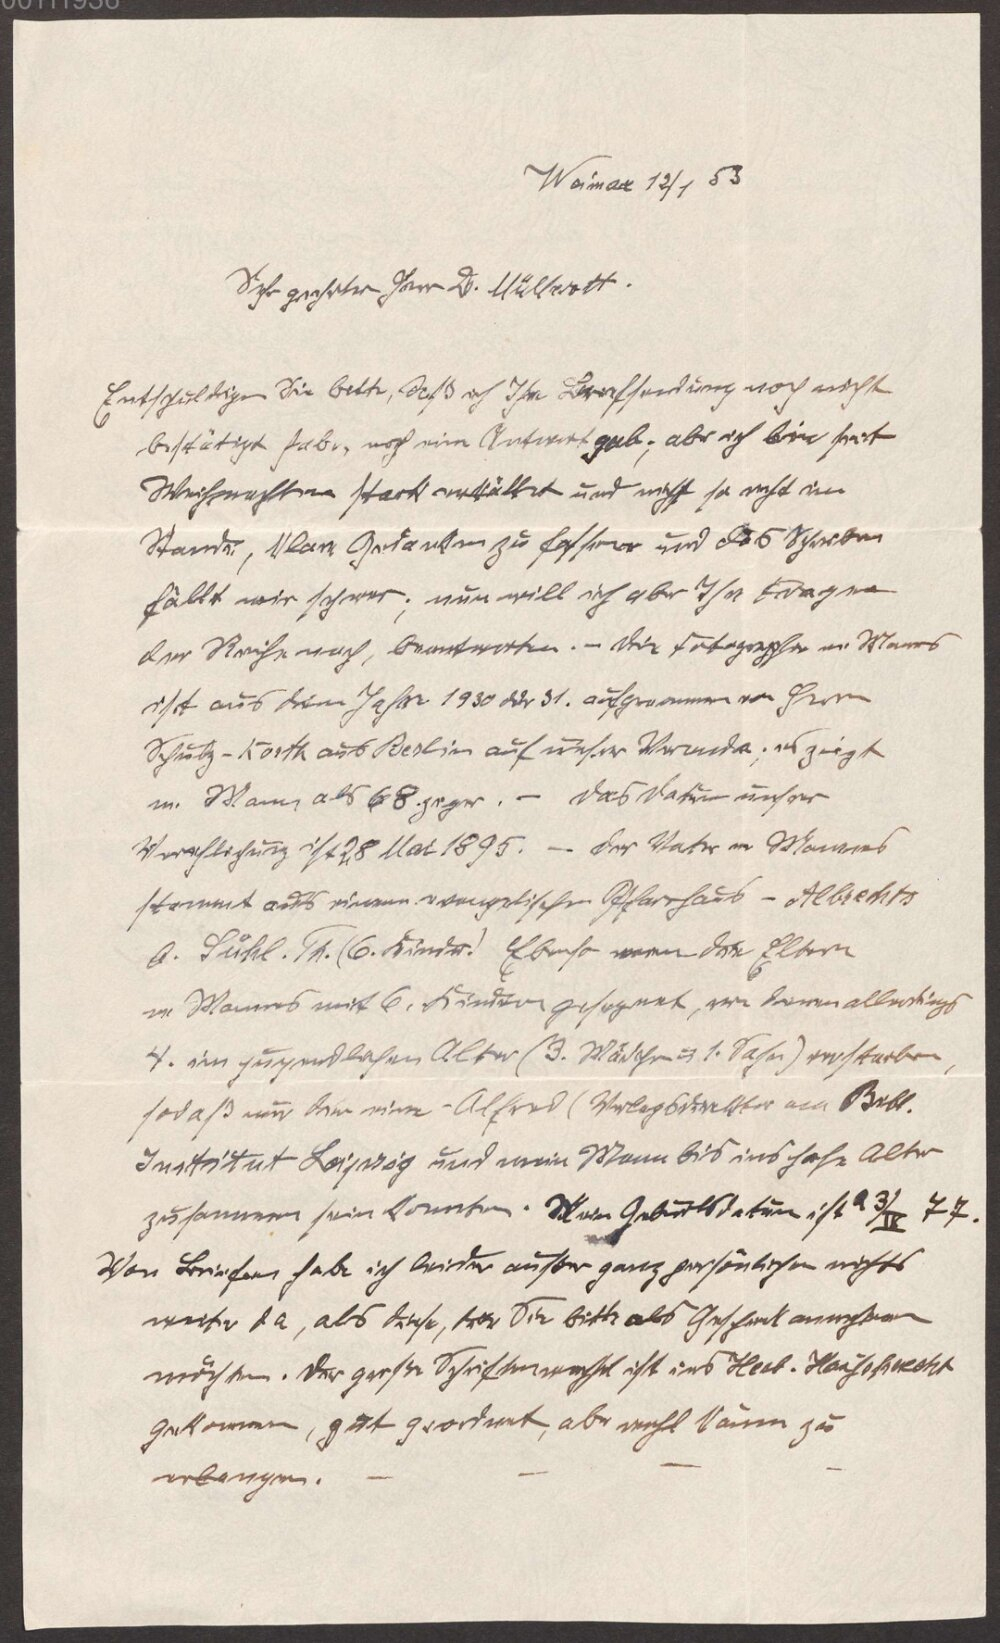 00111936
Weimar 12/1 53
Sehr geehrter Herr D. Müllerott.
Entschuldigen Sie bitte, daß ich Ihre Briefsendung noch nicht
bestätigt habe, noch eine Antwort gab; aber ich bin seit
Weihnachten stark erkältet und nicht so recht im
Stande, klare Gedanken zu fassen und das Schreiben
fällt mir schwer; nun will ich aber Ihre Fragen
der Reihe nach, beantworten. – Die Fotographie m. Mannes
ist aus dem Jahre 1930 oder 31. aufgenommen von Herrn
Schulz-Korth aus Berlin auf unserer Veranda; es zeigt
m. Mann als 68 jeger. – Das Datum unserer
Verehlichung ist 28 Mai 1895. – Der Vater m Mannes
stammt aus einem evangelischen Pfarrhaus – Albrechts
b. Suhl. Th. (6. Kinder! Ebenso waren die Eltern
m Mannes mit 6. Kindern gesegnet, von denen allerdings
4. im jugendlichen Alter (3. Mädchen u 1. Sohn) verstarben,
sodaß nur der eine - Alfred (Verlagsdirektor am Bibl.
Institut Leipzig und mein Mann bis ins hohe Alter
zusammen sein konnten. Mein Geburtsdatum ist 3/IV 77.
Von Briefen habe ich leider außer ganz persönlichen nichts
weiter da, als diese, die Sie bitte als Geschenk annehmen
möchten. Der große Schriftenwechsel ist ins Herb. Haussknecht
gekommen, gut geordnet, aber wohl kaum zu
erlangen. – – – –